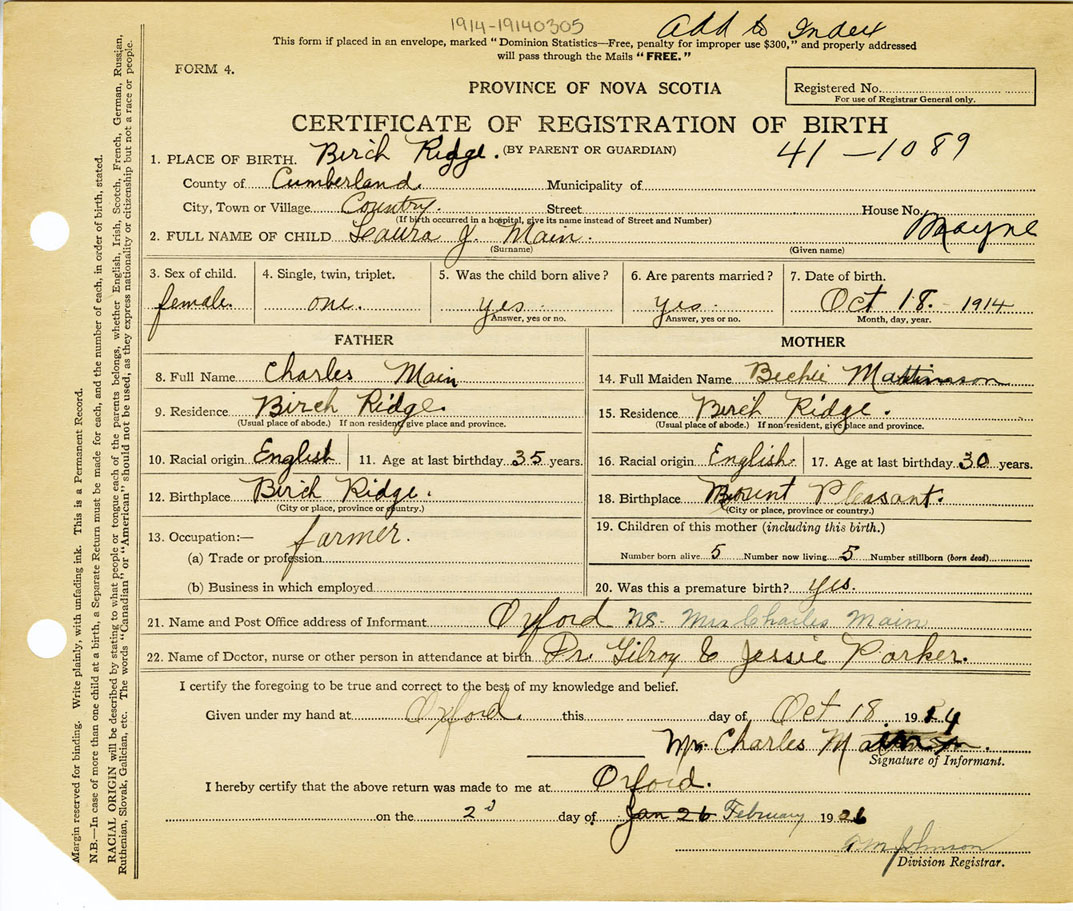 1914-19140305 Add to Index
This form if placed in an envelope, marked "Dominion Statistics—Free, penalty for improper use $300," and properly addressed
will pass through the Mails "FREE."
FORM 4.
PROVINCE OF NOVA SCOTIA
Registered No.
For use of Registrar General only.
CERTIFICATE OF REGISTRATION OF BIRTH
(BY PARENT OR GUARDIAN)
41-1089
1. PLACE OF BIRTH. Birch Ridge.
County of Cumberland. Municipality of
City, Town or Village Country. Street House No.
(If birth occurred in a hospital, give its name instead of Street and Number)
Mayne
2. FULL NAME OF CHILD Laura J. Main.
(Surname) (Given name)
3. Sex of child. 4. Single, twin, triplet. 5. Was the child born alive? 6. Are parents married? 7. Date of birth.
female. one. yes. yes. Oct 18. 1914
Answer, yes or no. Answer, yes or no. Month, day, year.
FATHER
8. Full Name Charles Main
9. Residence Birch Ridge.
(Usual place of abode.) If non resident, give place and province.
10. Racial origin English 11. Age at last birthday 35 years.
12. Birthplace Birch Ridge.
(City or place, province or country.)
13. Occupation:— farmer.
(a) Trade or profession
(b) Business in which employed
MOTHER
14. Full Maiden Name Bechie Mattinson
15. Residence Birch Ridge.
(Usual place of abode.) If non resident, give place and province.
16. Racial origin English. 17. Age at last birthday 30 years.
18. Birthplace Mount Pleasant.
(City or place, province or country.)
19. Children of this mother (including this birth.)
Number born alive 5 Number now living 5 Number stillborn (born dead)
20. Was this a premature birth? yes.
21. Name and Post Office address of Informant Oxford NS. Mrs Charles Main
22. Name of Doctor, nurse or other person in attendance at birth Dr. Gilroy & Jessie Parker.
I certify the foregoing to be true and correct to the best of my knowledge and belief.
Given under my hand at Oxford. this day of Oct 18 1914
Mr. Charles Main
Signature of Informant.
I hereby certify that the above return was made to me at Oxford.
on the 2d day of Jan 26 February 1926
A M Johnson
Division Registrar.
Margin reserved for binding. Write plainly, with unfading ink. This is a Permanent Record.
N.B.—In case of more than one child at a birth, a Separate Return must be made for each, and the number of each, in order of birth, stated.
RACIAL ORIGIN will be described by stating to what people or tongue each of the parents belongs, whether English, Irish, Scotch, French, German, Russian,
Ruthenian, Slovak, Galician, etc. The words "Canadian" or "American" should not be used, as they express nationality or citizenship but not a race or people.